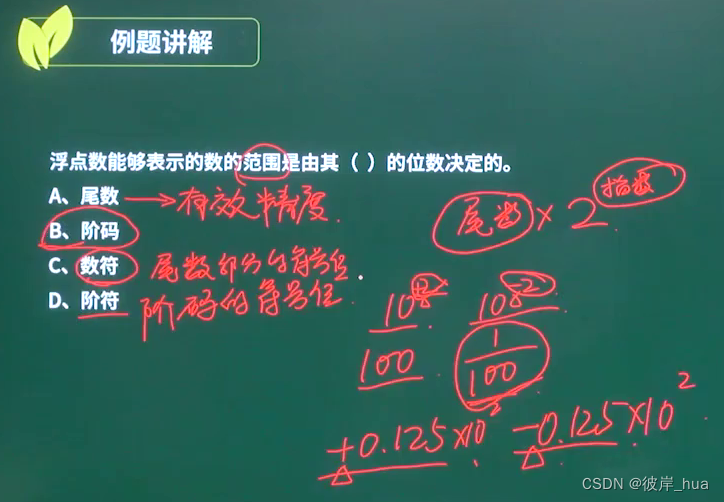 例题讲解
浮点数能够表示的数的范围是由其（ ）的位数决定的。
A、尾数 → 有效精度.
B、阶码
C、数符 尾数部分的符号位.
D、阶符 阶码的符号位.
尾数 × 2 指数
10 +2 10 -2
100 1/100
+0.125×10 2 -0.125×10 2
CSDN @彼岸_hua